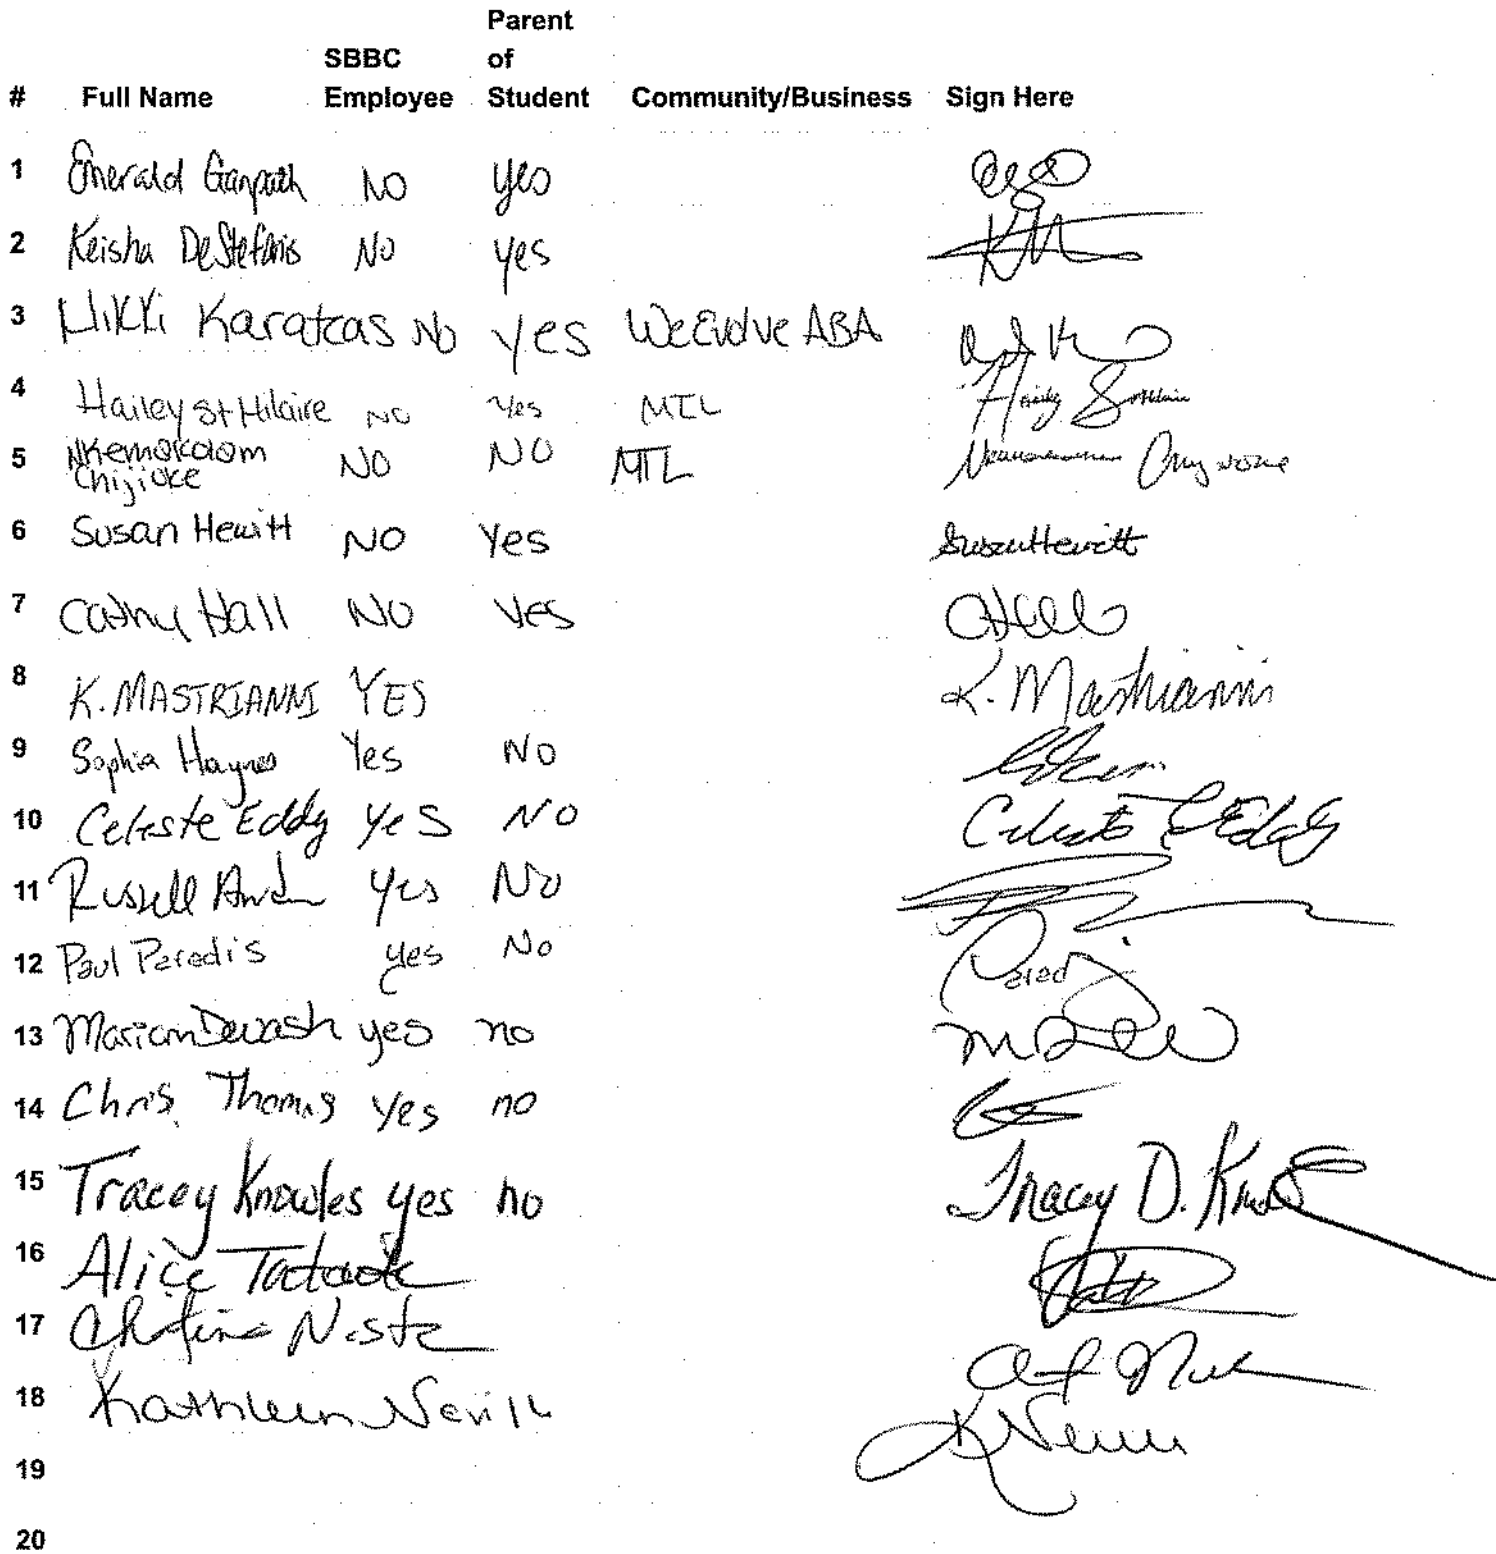 # Full Name SBBC Employee Parent of Student Community/Business Sign Here
1 Emerald Ganpath NO yes
2 Keisha DeStefanis No yes
3 Nikki Karatzas No yes WeEvolve ABA
4 Hailey St Hilaire NO Yes MTL Hailey
5 Nkemakolam Chijioke NO NO MTL
6 Susan Hewitt NO Yes Susan Hewitt
7 Cathy Hall NO Yes CHall
8 K. MASTRIANNI YES K. Mastrianni
9 Sophia Haynes Yes NO
10 Celeste Eddy yes NO Celeste Eddy
11 Russell yes No
12 Paul Paradis yes No
13 Mariam Dewash yes no
14 Chris Thomas Yes no
15 Tracey Knowles yes no Tracey D.
16 Alice
17
18 Kathleen Neville
19
20